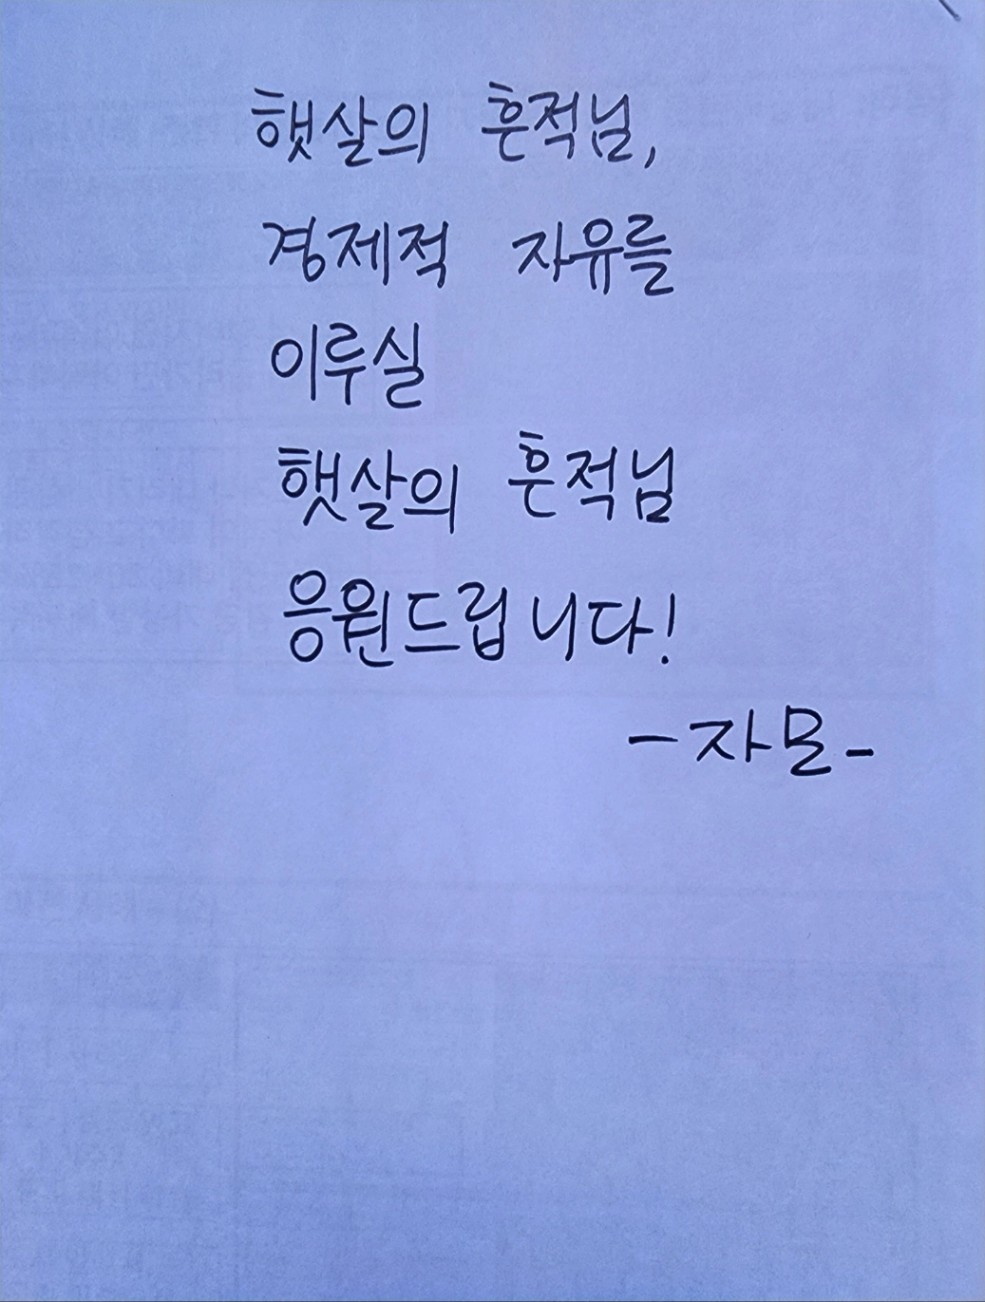 햇살의 흔적님,
경제적 자유를
이루실
햇살의 흔적님
응원드립니다!
-자모-